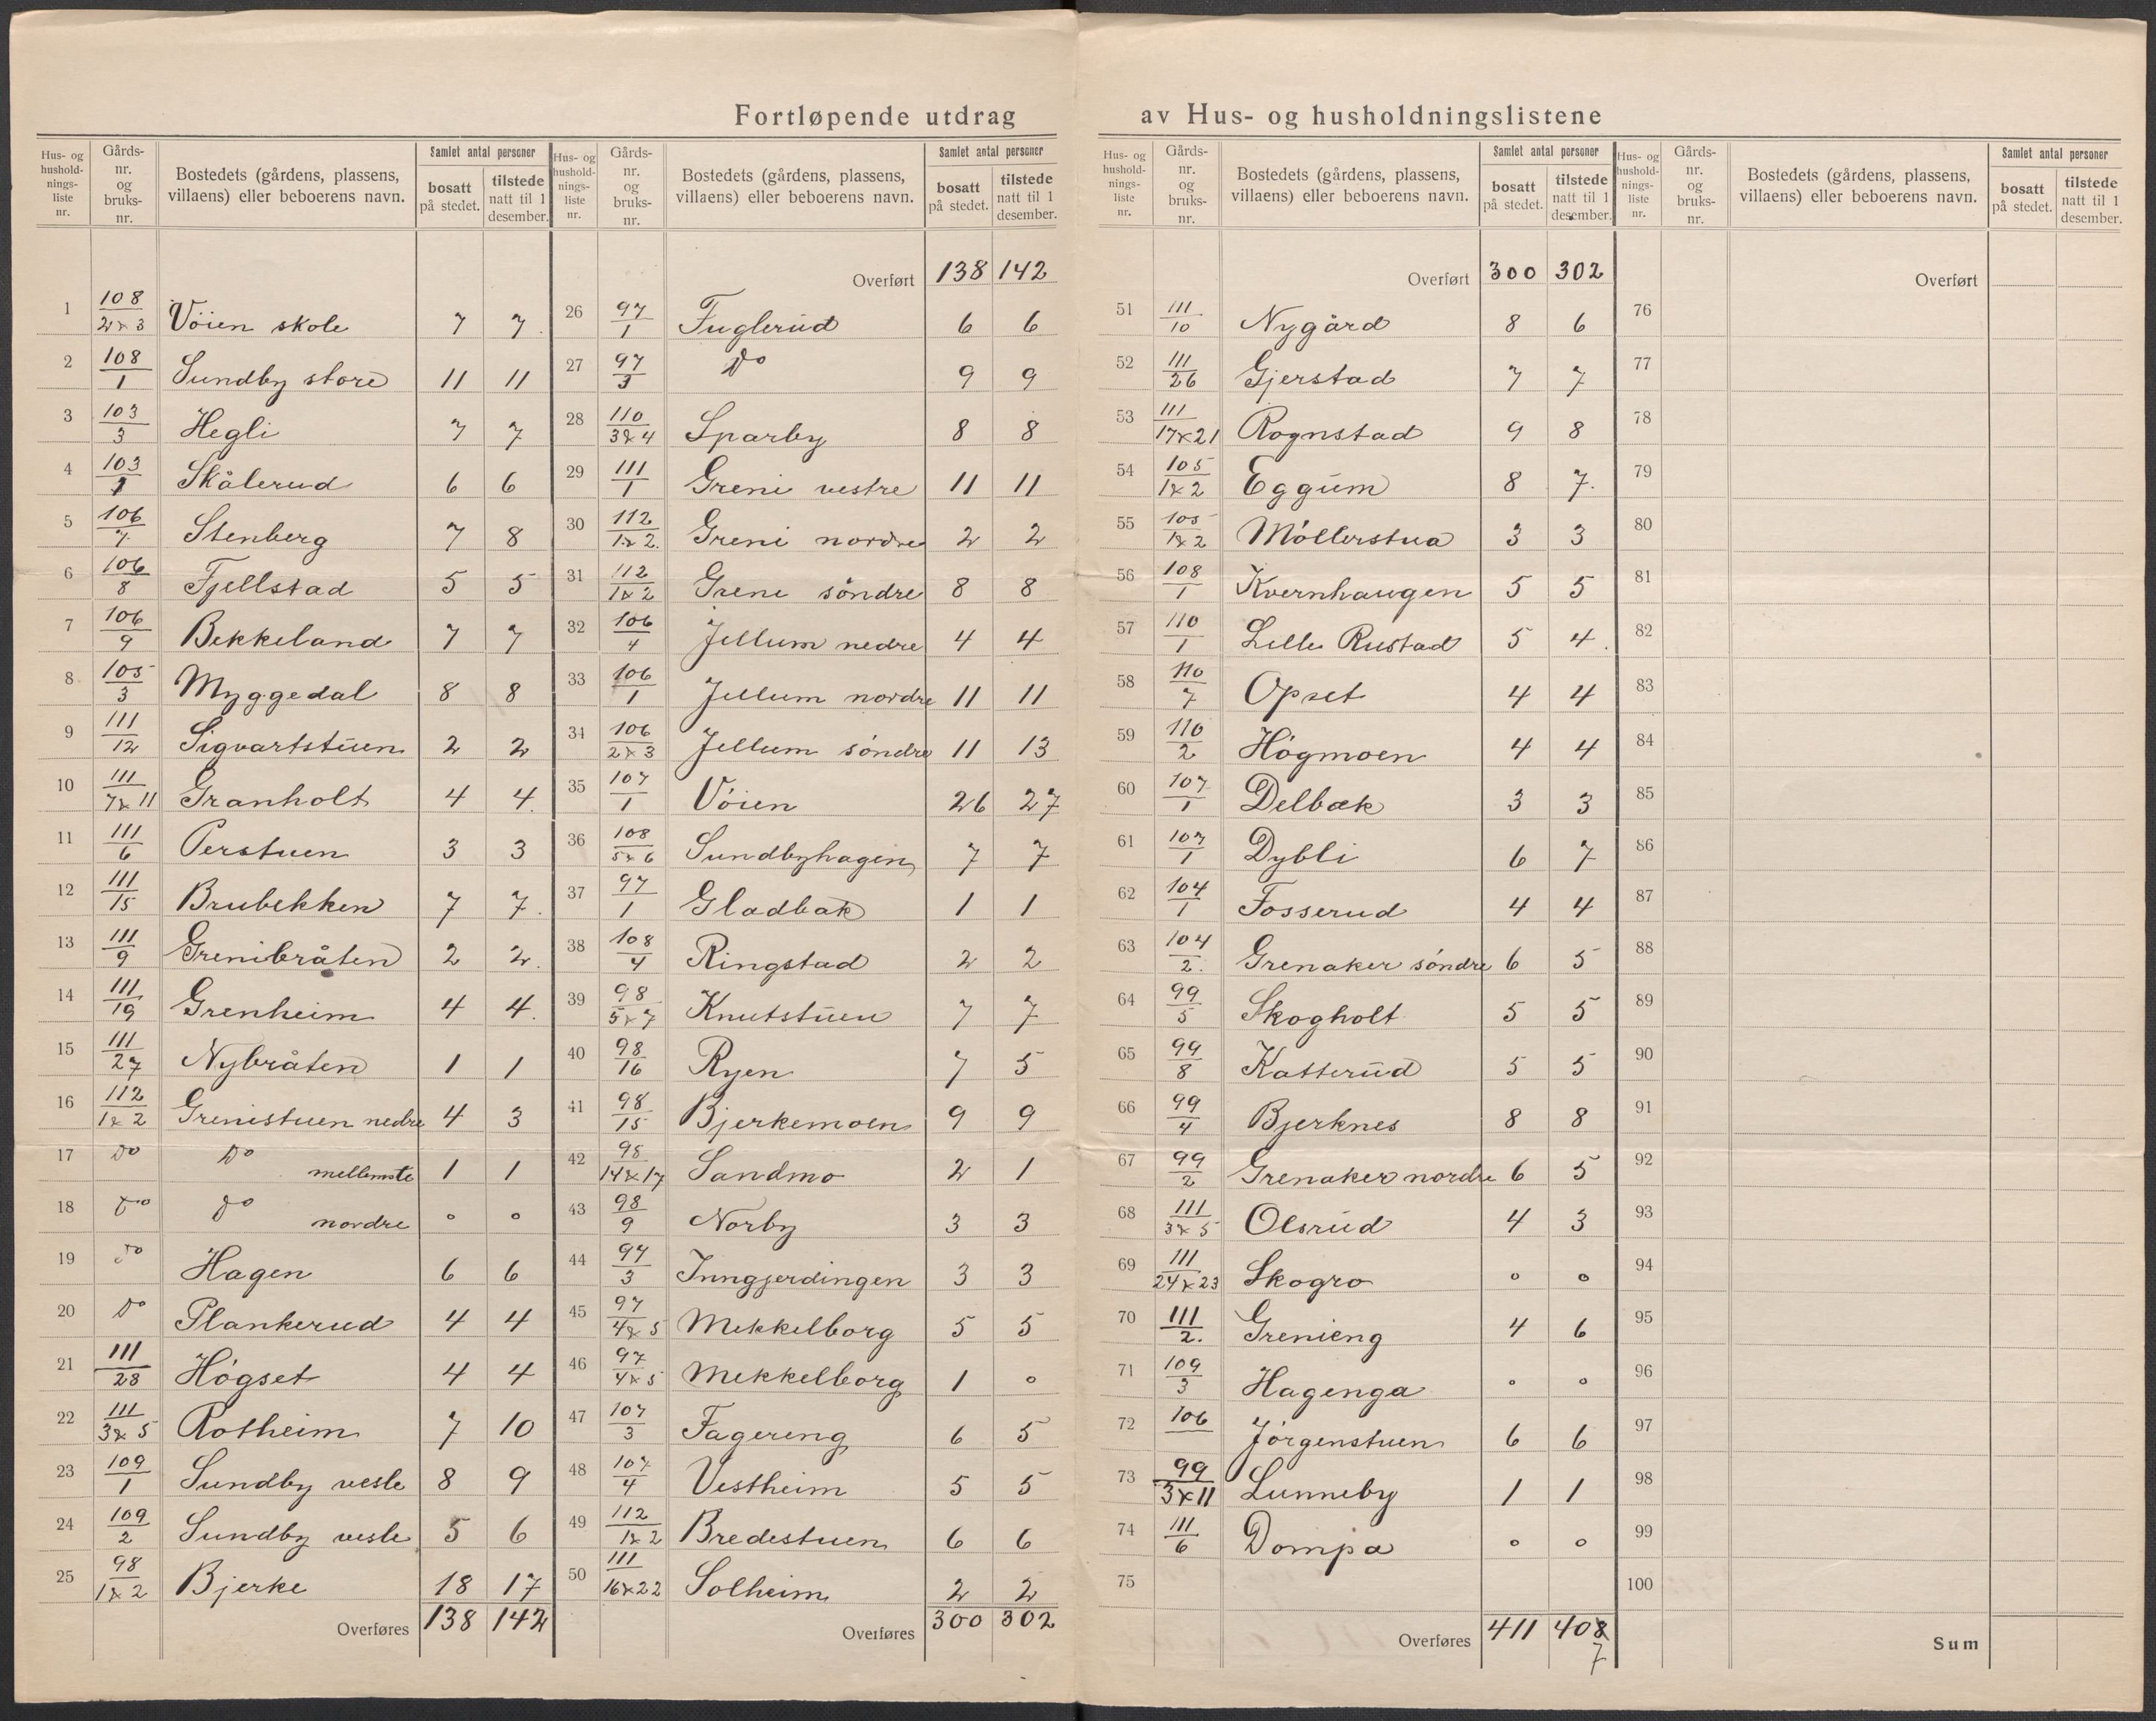 Fortløpende utdrag av Hus- og husholdningslistene
Hus- og hushold-nings-liste nr. | Gårds-nr. og bruks-nr. | Bostedets (gårdens, plassens, villaens) eller beboerens navn. | Samlet antal personer | bosatt på stedet. | tilstede natt til 1 desember.
1 108/2&3 Vöien skole 7 7
2 108/1 Sundby store 11 11
3 103/3 Hegli 7 7
4 103/1 Skålerud 6 6
5 106/7 Stenberg 7 8
6 106/8 Fjellstad 5 5
7 106/9 Bekkeland 7 7
8 105/3 Myggedal 8 8
9 111/12 Sigvartstuen 2 2
10 111/7&11 Granholt 4 4
11 111/6 Perstuen 3 3
12 111/15 Brubekken 7 7
13 111/9 Grenibråten 2 2
14 111/19 Grenheim 4 4
15 111/27 Nybråten 1 1
16 112/1&2 Grenistuen nedre 4 3
17 Do Do mellemste 1 1
18 Do Do nordre 0 0
19 Do Hagen 6 6
20 Do Plankerud 4 4
21 111/28 Högset 4 4
22 111/3&5 Rotheim 7 10
23 109/1 Sundby vesle 8 9
24 109/2 Sundby vesle 5 6
25 98/1&2 Bjerke 18 17
Overføres 138 142
Hus- og hushold-nings-liste nr. | Gårds-nr. og bruks-nr. | Bostedets (gårdens, plassens, villaens) eller beboerens navn. | Samlet antal personer | bosatt på stedet. | tilstede natt til 1 desember.
Overført 138 142
26 97/1 Fuglerud 6 6
27 97/3 Do 9 9
28 110/3&4 Sparby 8 8
29 111/1 Greni vestre 11 11
30 112/1&2 Greni nordre 2 2
31 112/1&2 Greni söndre 8 8
32 106/4 Jellum nedre 4 4
33 106/1 Jellum nordre 11 11
34 106/2&3 Jellum söndre 11 13
35 107/1 Vöien 26 27
36 108/5&6 Sundbyhagen 7 7
37 97/1 Gladbak 1 1
38 108/4 Ringstad 2 2
39 98/5&7 Knutstuen 7 7
40 98/16 Ryen 7 5
41 98/15 Bjerkemoen 9 9
42 98/14&17 Sandmo 2 1
43 98/9 Norby 3 3
44 97/3 Inngjerdingen 3 3
45 97/4&5 Mekkelborg 5 5
46 97/4&5 Mekkelborg 1 0
47 107/3 Fagereng 6 5
48 107/4 Vestheim 5 5
49 112/1&2 Bredestuen 6 6
50 111/16&22 Solheim 2 2
Overføres 300 302
Hus- og hushold-nings-liste nr. | Gårds-nr. og bruks-nr. | Bostedets (gårdens, plassens, villaens) eller beboerens navn. | Samlet antal personer | bosatt på stedet. | tilstede natt til 1 desember.
Overført 300 302
51 111/10 Nygård 8 6
52 111/26 Gjerstad 7 7
53 111/17&21 Rognstad 9 8
54 105/1&2 Eggum 8 7
55 105/1&2 Möllerstua 3 3
56 108/1 Kvernhaugen 5 5
57 110/1 Lille Rustad 5 4
58 110/7 Opset 4 4
59 110/2 Högmoen 4 4
60 107/1 Delbæk 3 3
61 107/1 Dybli 6 7
62 104/1 Fosserud 4 4
63 104/2 Grenaker söndre 6 5
64 99/5 Skogholt 5 5
65 99/8 Katterud 5 5
66 99/4 Bjerknes 8 8
67 99/2 Grenaker nordre 6 5
68 111/3&5 Olsrud 4 3
69 111/24&23 Skogro 0 0
70 111/2 Grenieng 4 6
71 109/3 Hagenga 0 0
72 106 Jörgenstuen 6 6
73 99/3&11 Lunneby 1 1
74 111/6 Dompa 0 0
75
Overføres 411 408
7
Hus- og hushold-nings-liste nr. | Gårds-nr. og bruks-nr. | Bostedets (gårdens, plassens, villaens) eller beboerens navn. | Samlet antal personer | bosatt på stedet. | tilstede natt til 1 desember.
Overført
76
77
78
79
80
81
82
83
84
85
86
87
88
89
90
91
92
93
94
95
96
97
98
99
100
Sum